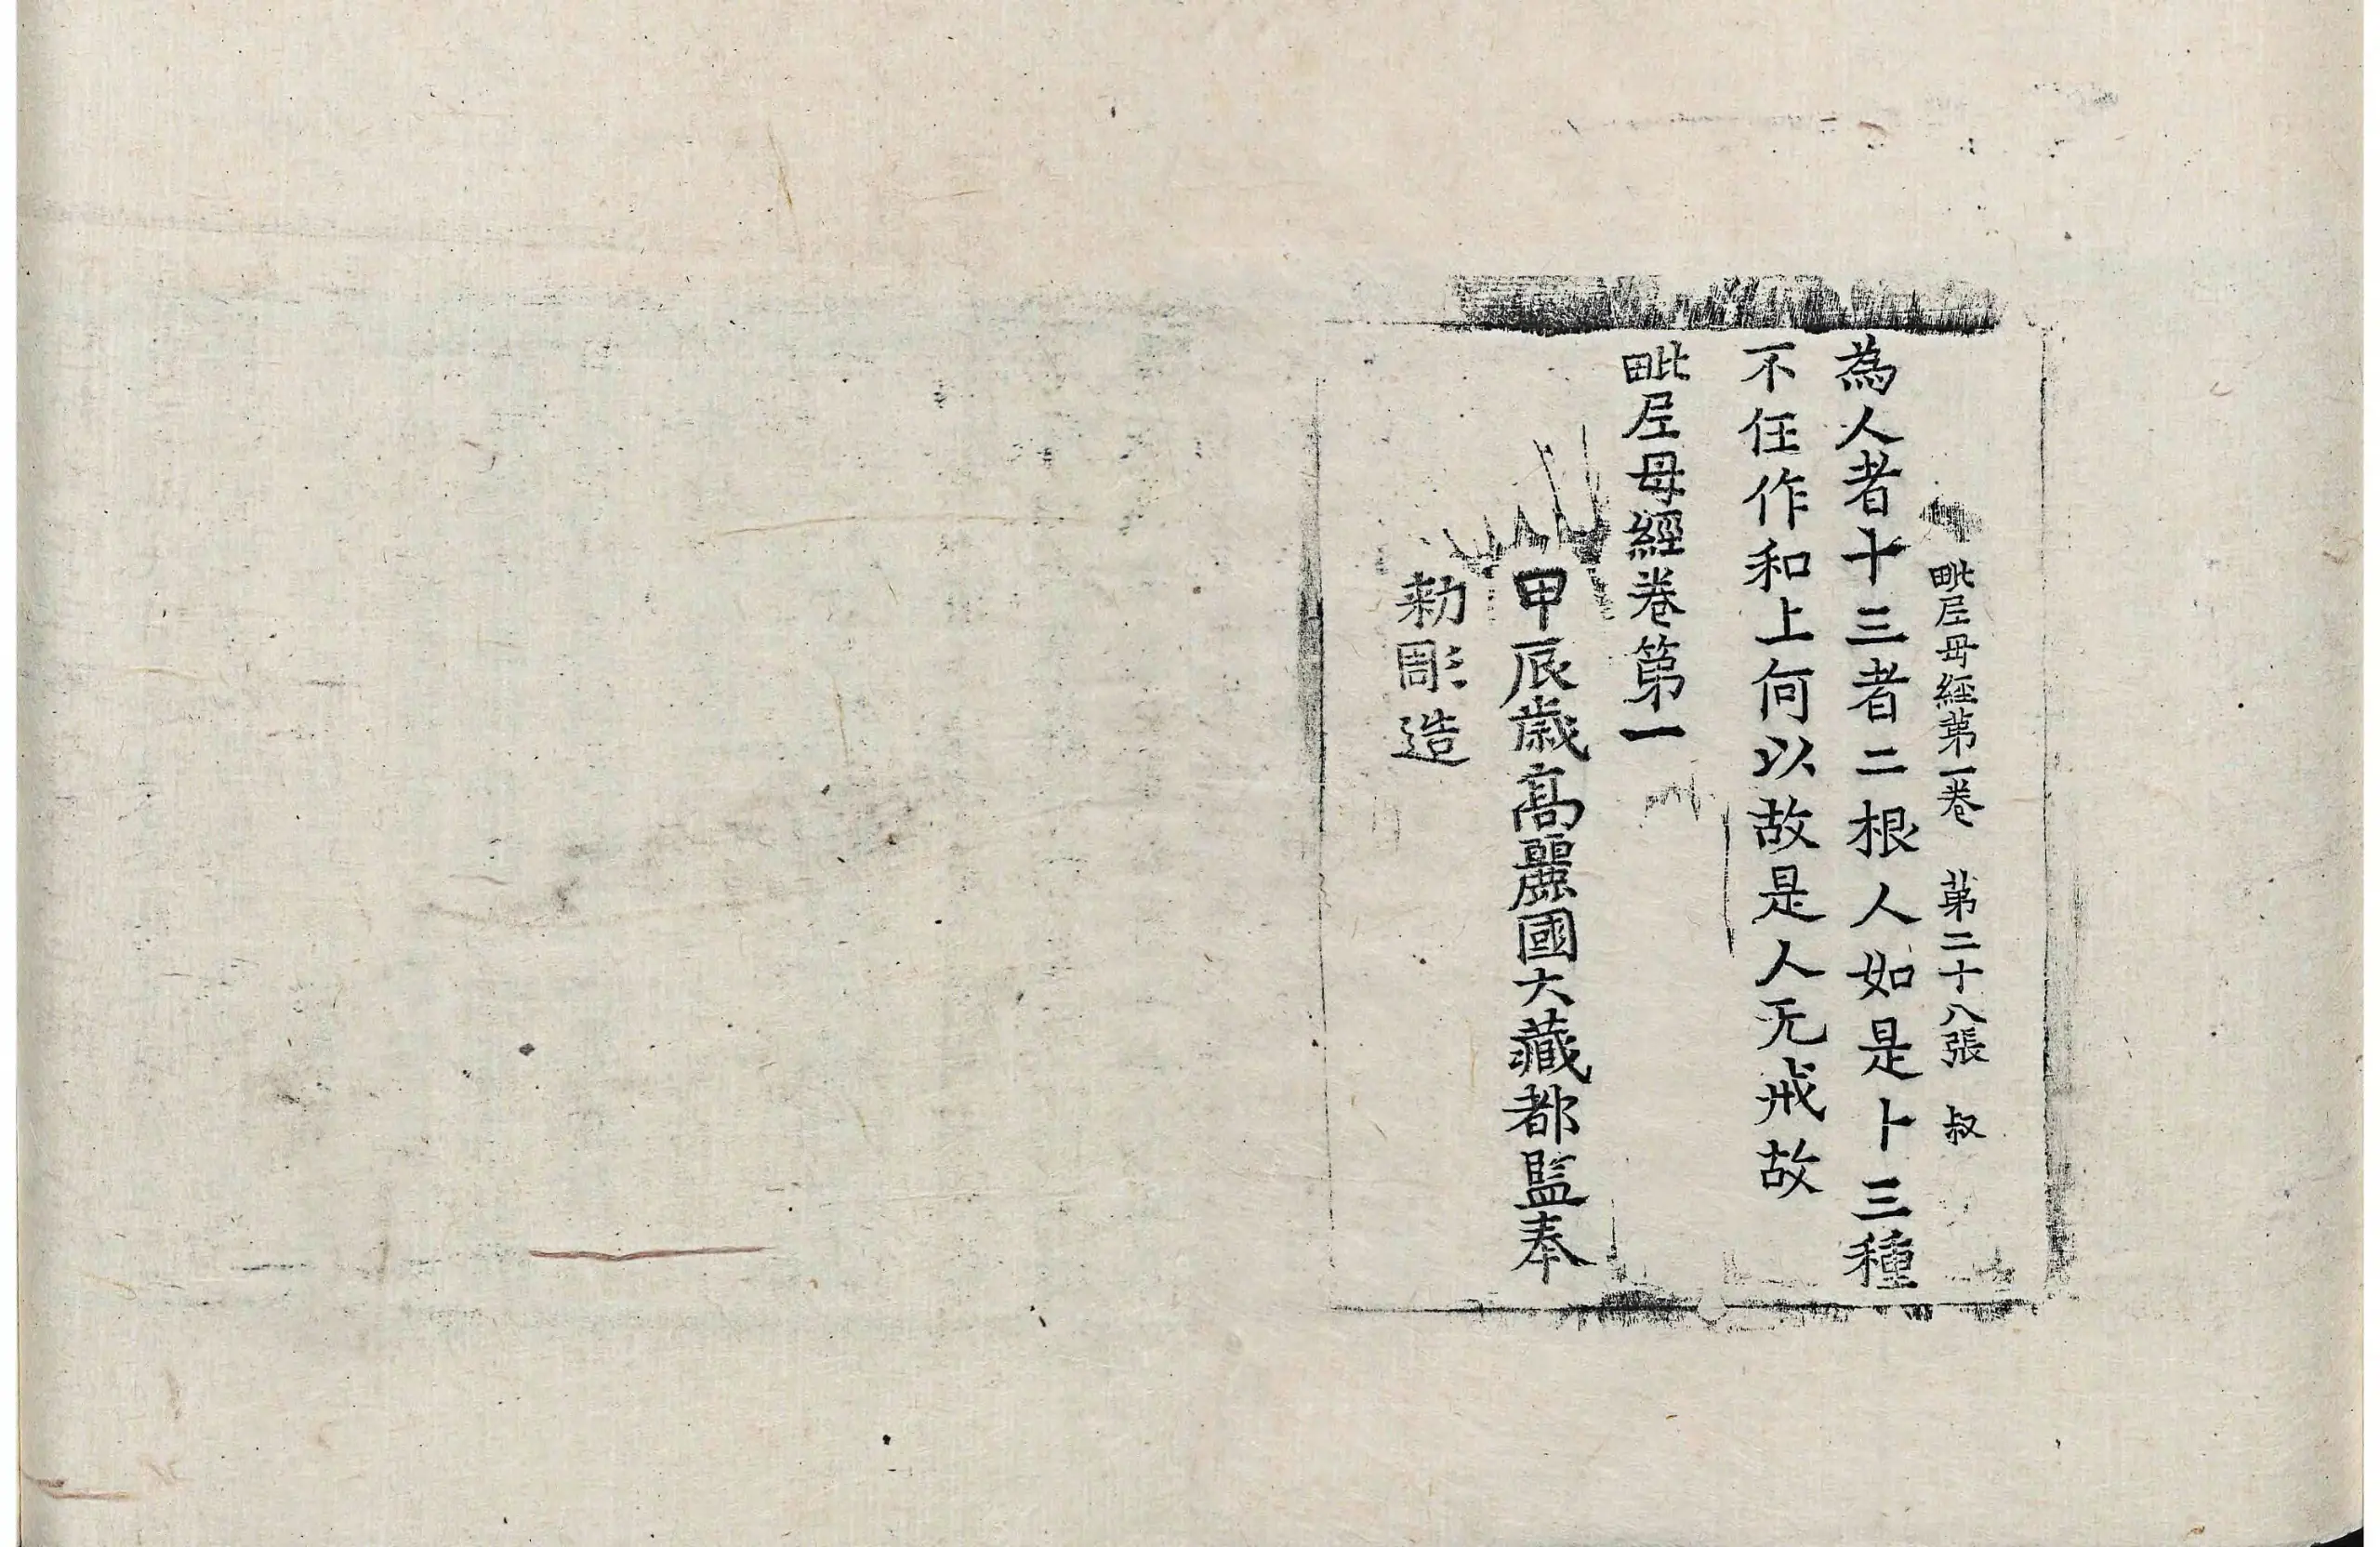 毗尼母經第一卷 第二十八張 叔
為人者十三者二根人如是十三種
不任作和上何以故是人无戒故
毗尼母經卷第一
甲辰歲高麗國大藏都監奉
勅彫造